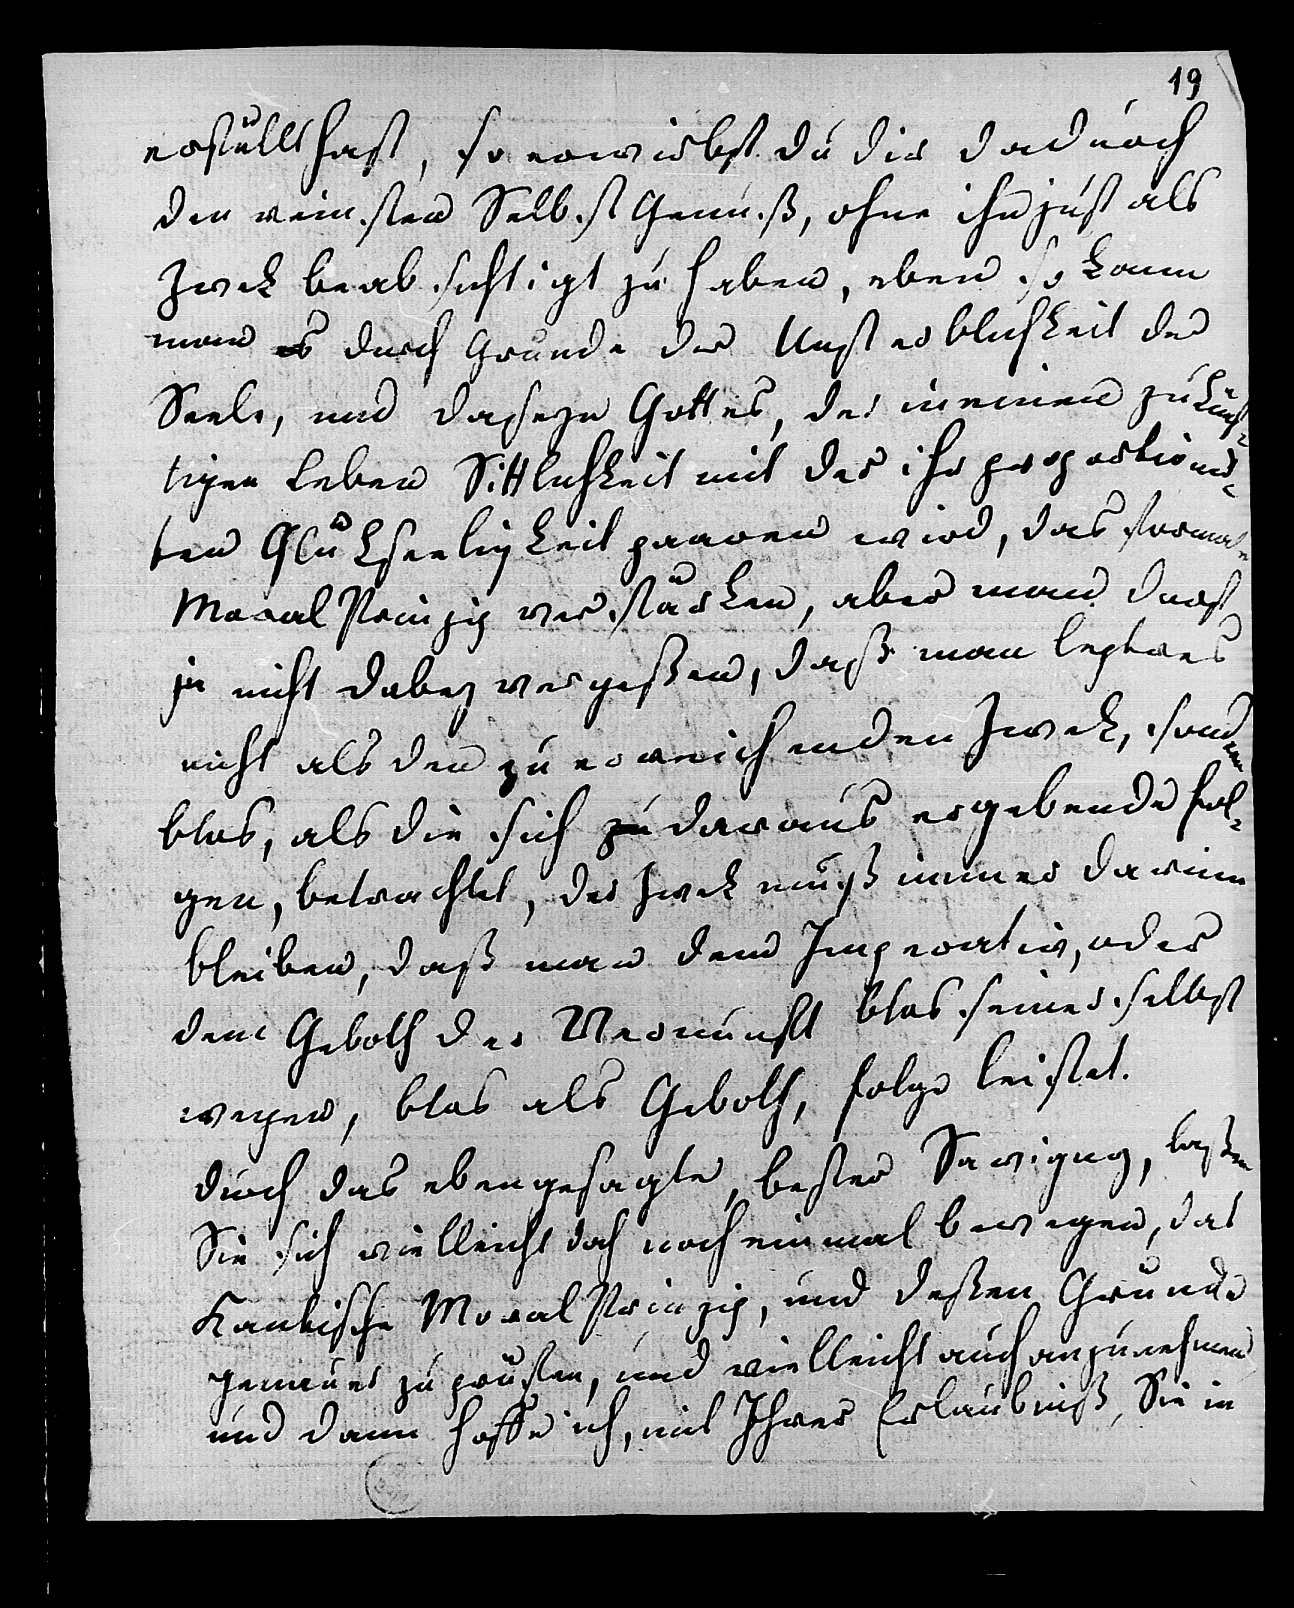 19
erfüllt hast, so erwirbst du dir dadurch
den reinsten SelbstGenuß, ohne ihn just als
Zwek beabsichtigt zu haben, eben so kann
man es durch Gründe der Unsterblichkeit der
Seele, und Daseyn Gottes, der in einem zukünf-
tigen Leben Sittlichkeit mit der ihr proportionir-
ten Glükseeligkeit paaren wird, das formale
MoralPrinzip verstärken, aber man darf
ja nicht dabey vergeßen, daß man leztres
nicht als den zu erreichenden Zwek, sondern
blos, als die sich zu daraus ergebende Fol-
gen, betrachtet, der Zwek muß immer darinn
bleiben, daß man dem Imperativ, oder
dem Geboth der Vernunft blos seiner selbst
wegen, blos als Geboth, folge leistet.
Durch das ebengesagte, bester Savigny, laßen
Sie sich vielleicht doch noch einmal bewegen, das
Kantische MoralPrinzip, und deßen Gründe
genauer zu prüfen, und vielleicht auch anzunehmen
und dann hoffe ich, mit Ihrer Erlaubniß, Sie in